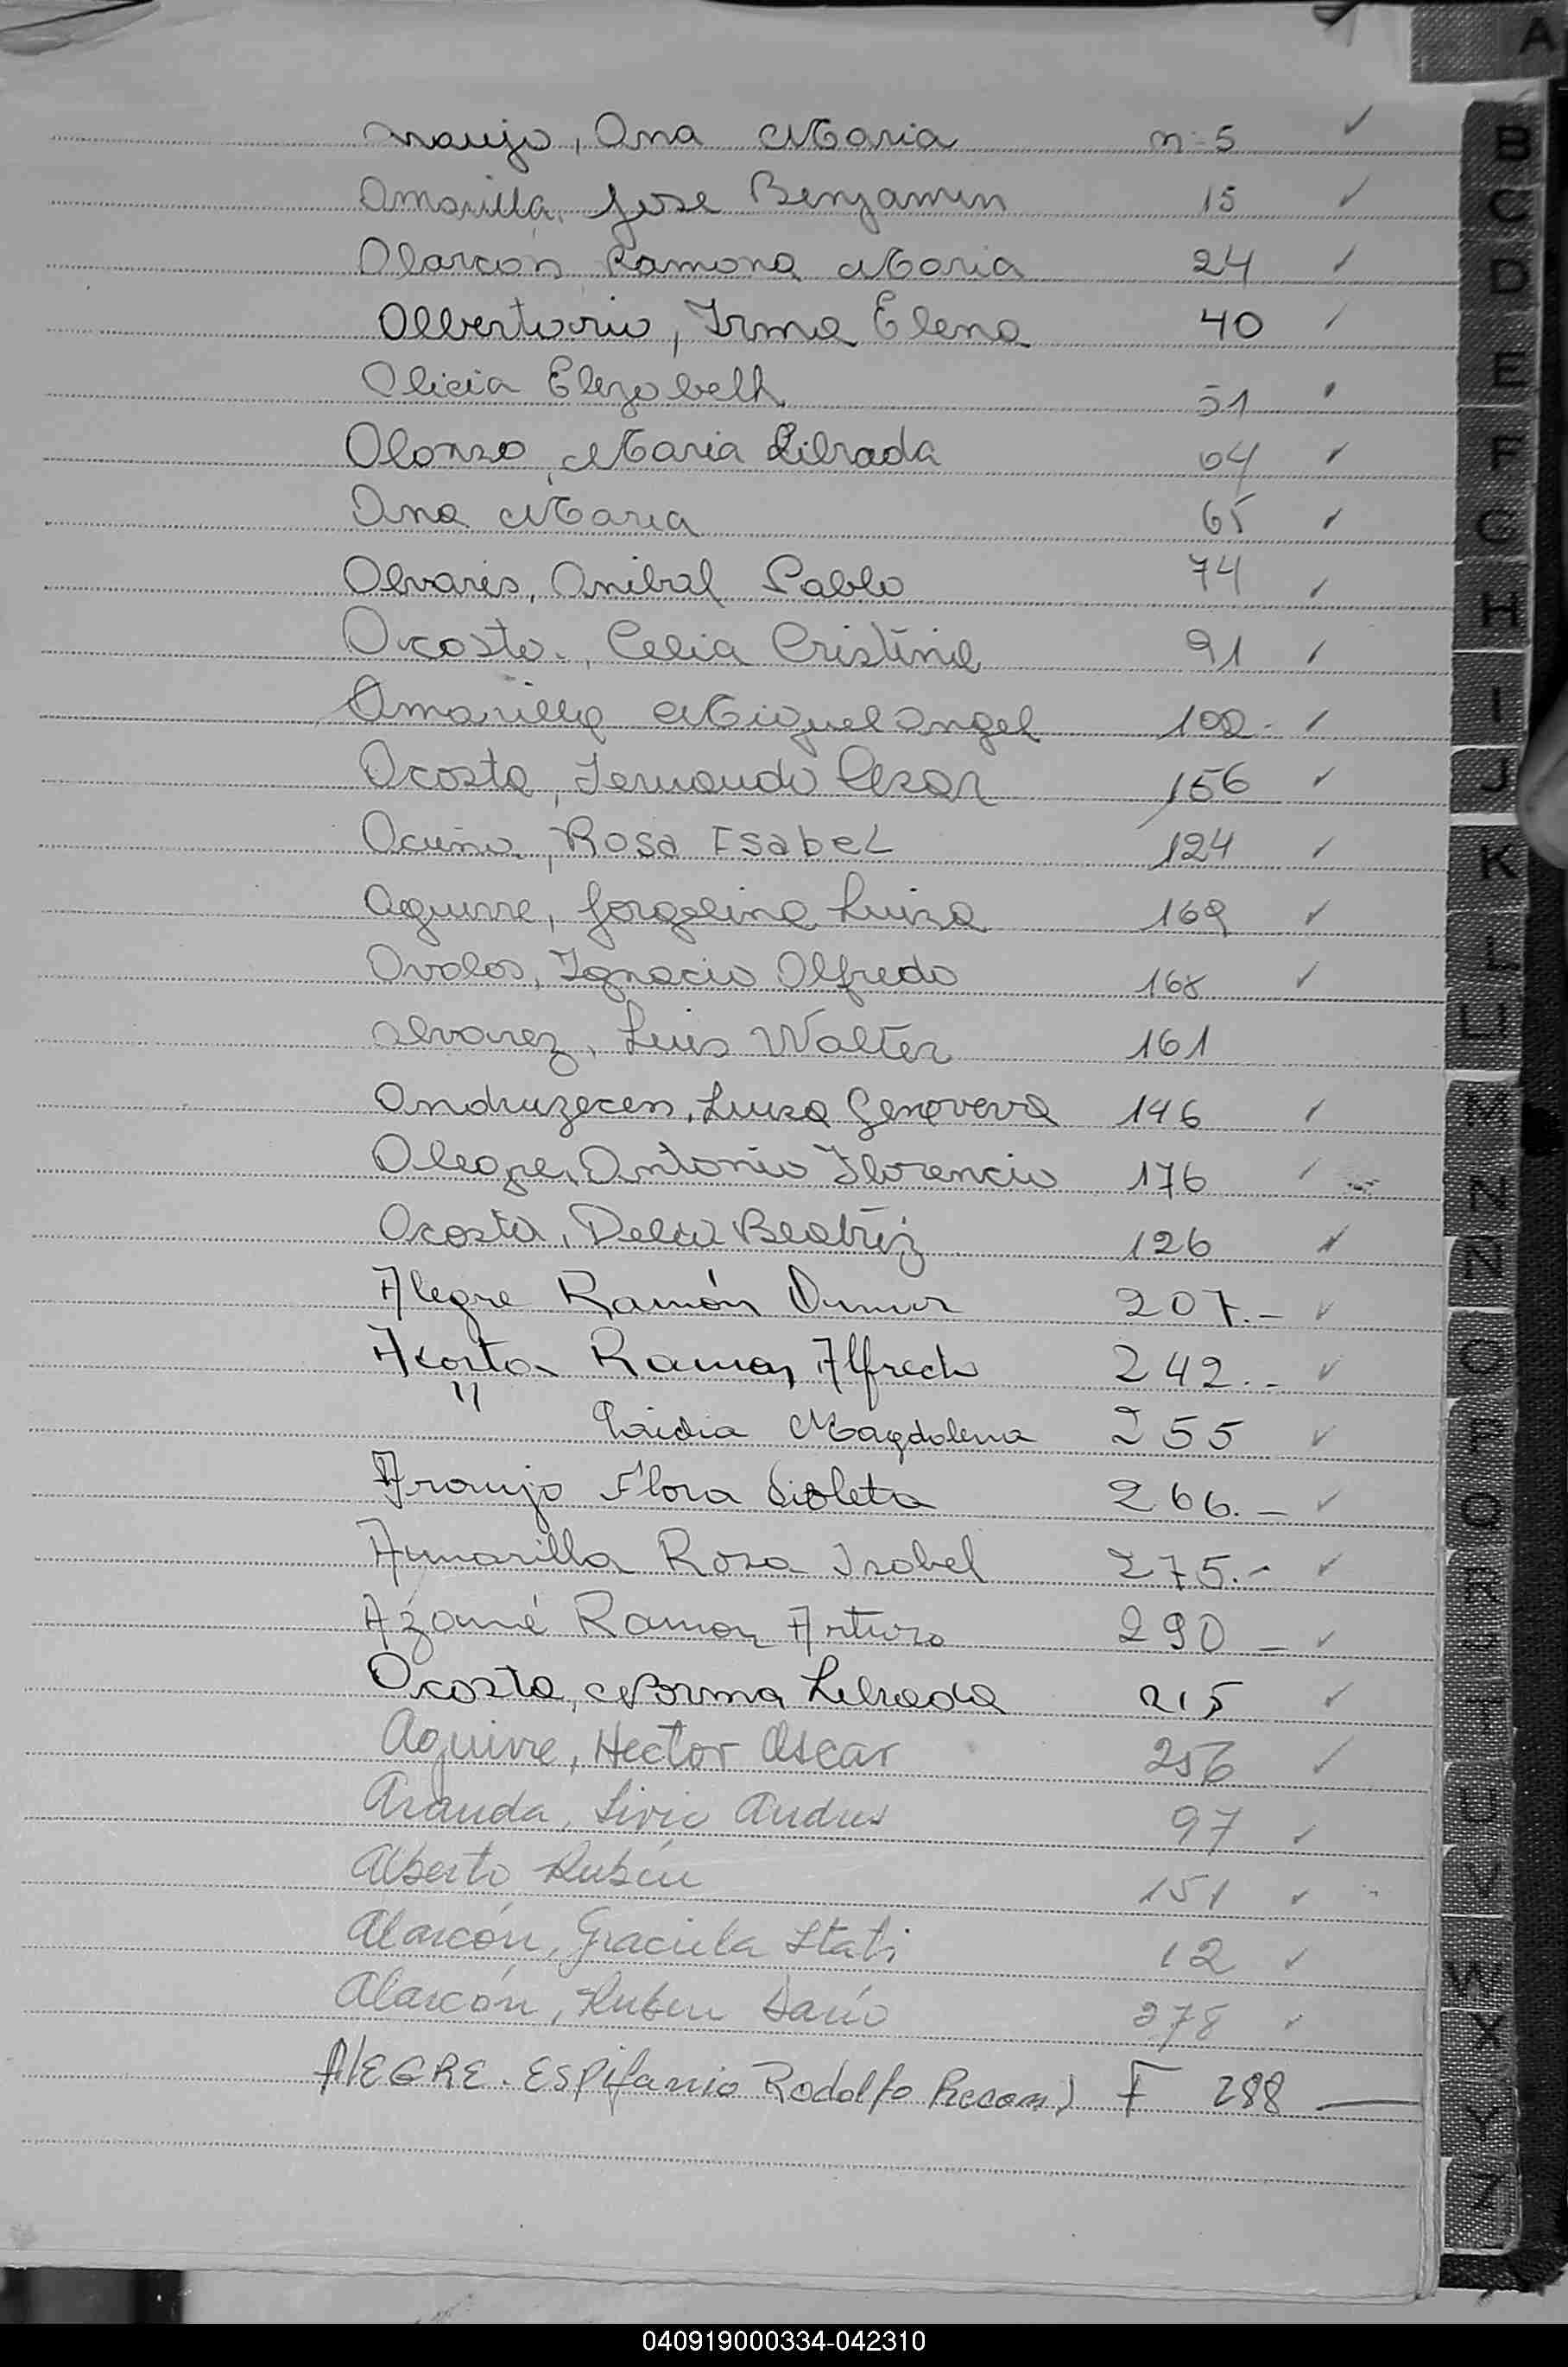 A
Araujo, Ana Maria n: 5 ✓
Amarilla, Jose Benjamin 15 ✓
Alarcón Ramona Maria 24 ✓
Albertorio, Irma Elena 40 ✓
Alicia Elizabeth 51
Alonso, Maria Librada 64 ✓
Ana Maria 65 ✓
Alvares, Anibal Pablo 74 ✓
Acosta, Celia Cristina 91 ✓
Amarilla Miguel Angel 100 - ✓
Acosta, Fernando Cesar 156 ✓
Acuña, Rosa Isabel 124 ✓
Aguirre, Jorgelina Luisa 169 ✓
Avalos, Ignacio Alfredo 168 ✓
Alvarez, Luis Walter 161
Luisa Genoveva 146 ✓
Alegre, Antonio Florencio 176 ✓
Acosta, Delia Beatriz 126 ✓
Alegre Ramón 207.- ✓
Acosta Ramon Alfredo 242.- ✓
" Lidia Magdalena 255 ✓
Araujo Flora Violeta 266.- ✓
Amarilla Rosa Isabel 275.- ✓
Azamé Ramon Arturo 290 - ✓
Acosta, Norma Librada 215 ✓
Aguirre, Hector Oscar 256 ✓
Aranda, Livio 97 ✓
Alberto Rubén 151 ✓
Alarcón, Graciela 12 ✓
Alarcón, Ruben Darío 278 ✓
AlEGRE. ESPifanio Rodolfo F 288 —
B
C
D
E
F
G
H
I
J
K
L
LL
M
N
Ñ
O
P
Q
R
S
T
U
V
W
X
Y
Z
040919000334-042310